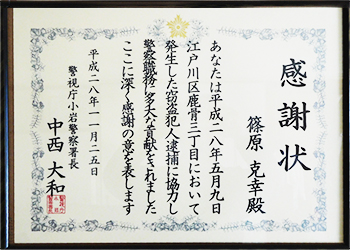 感謝状
篠原 克幸殿
あなたは平成二八年五月九日
江戸川区鹿骨三丁目において
発生した窃盗犯人逮捕に協力し
警察職務に多大な貢献をされました
ここに深く感謝の意を表します
平成二八年一一月二五日
警視庁小岩警察署長
中西 大和